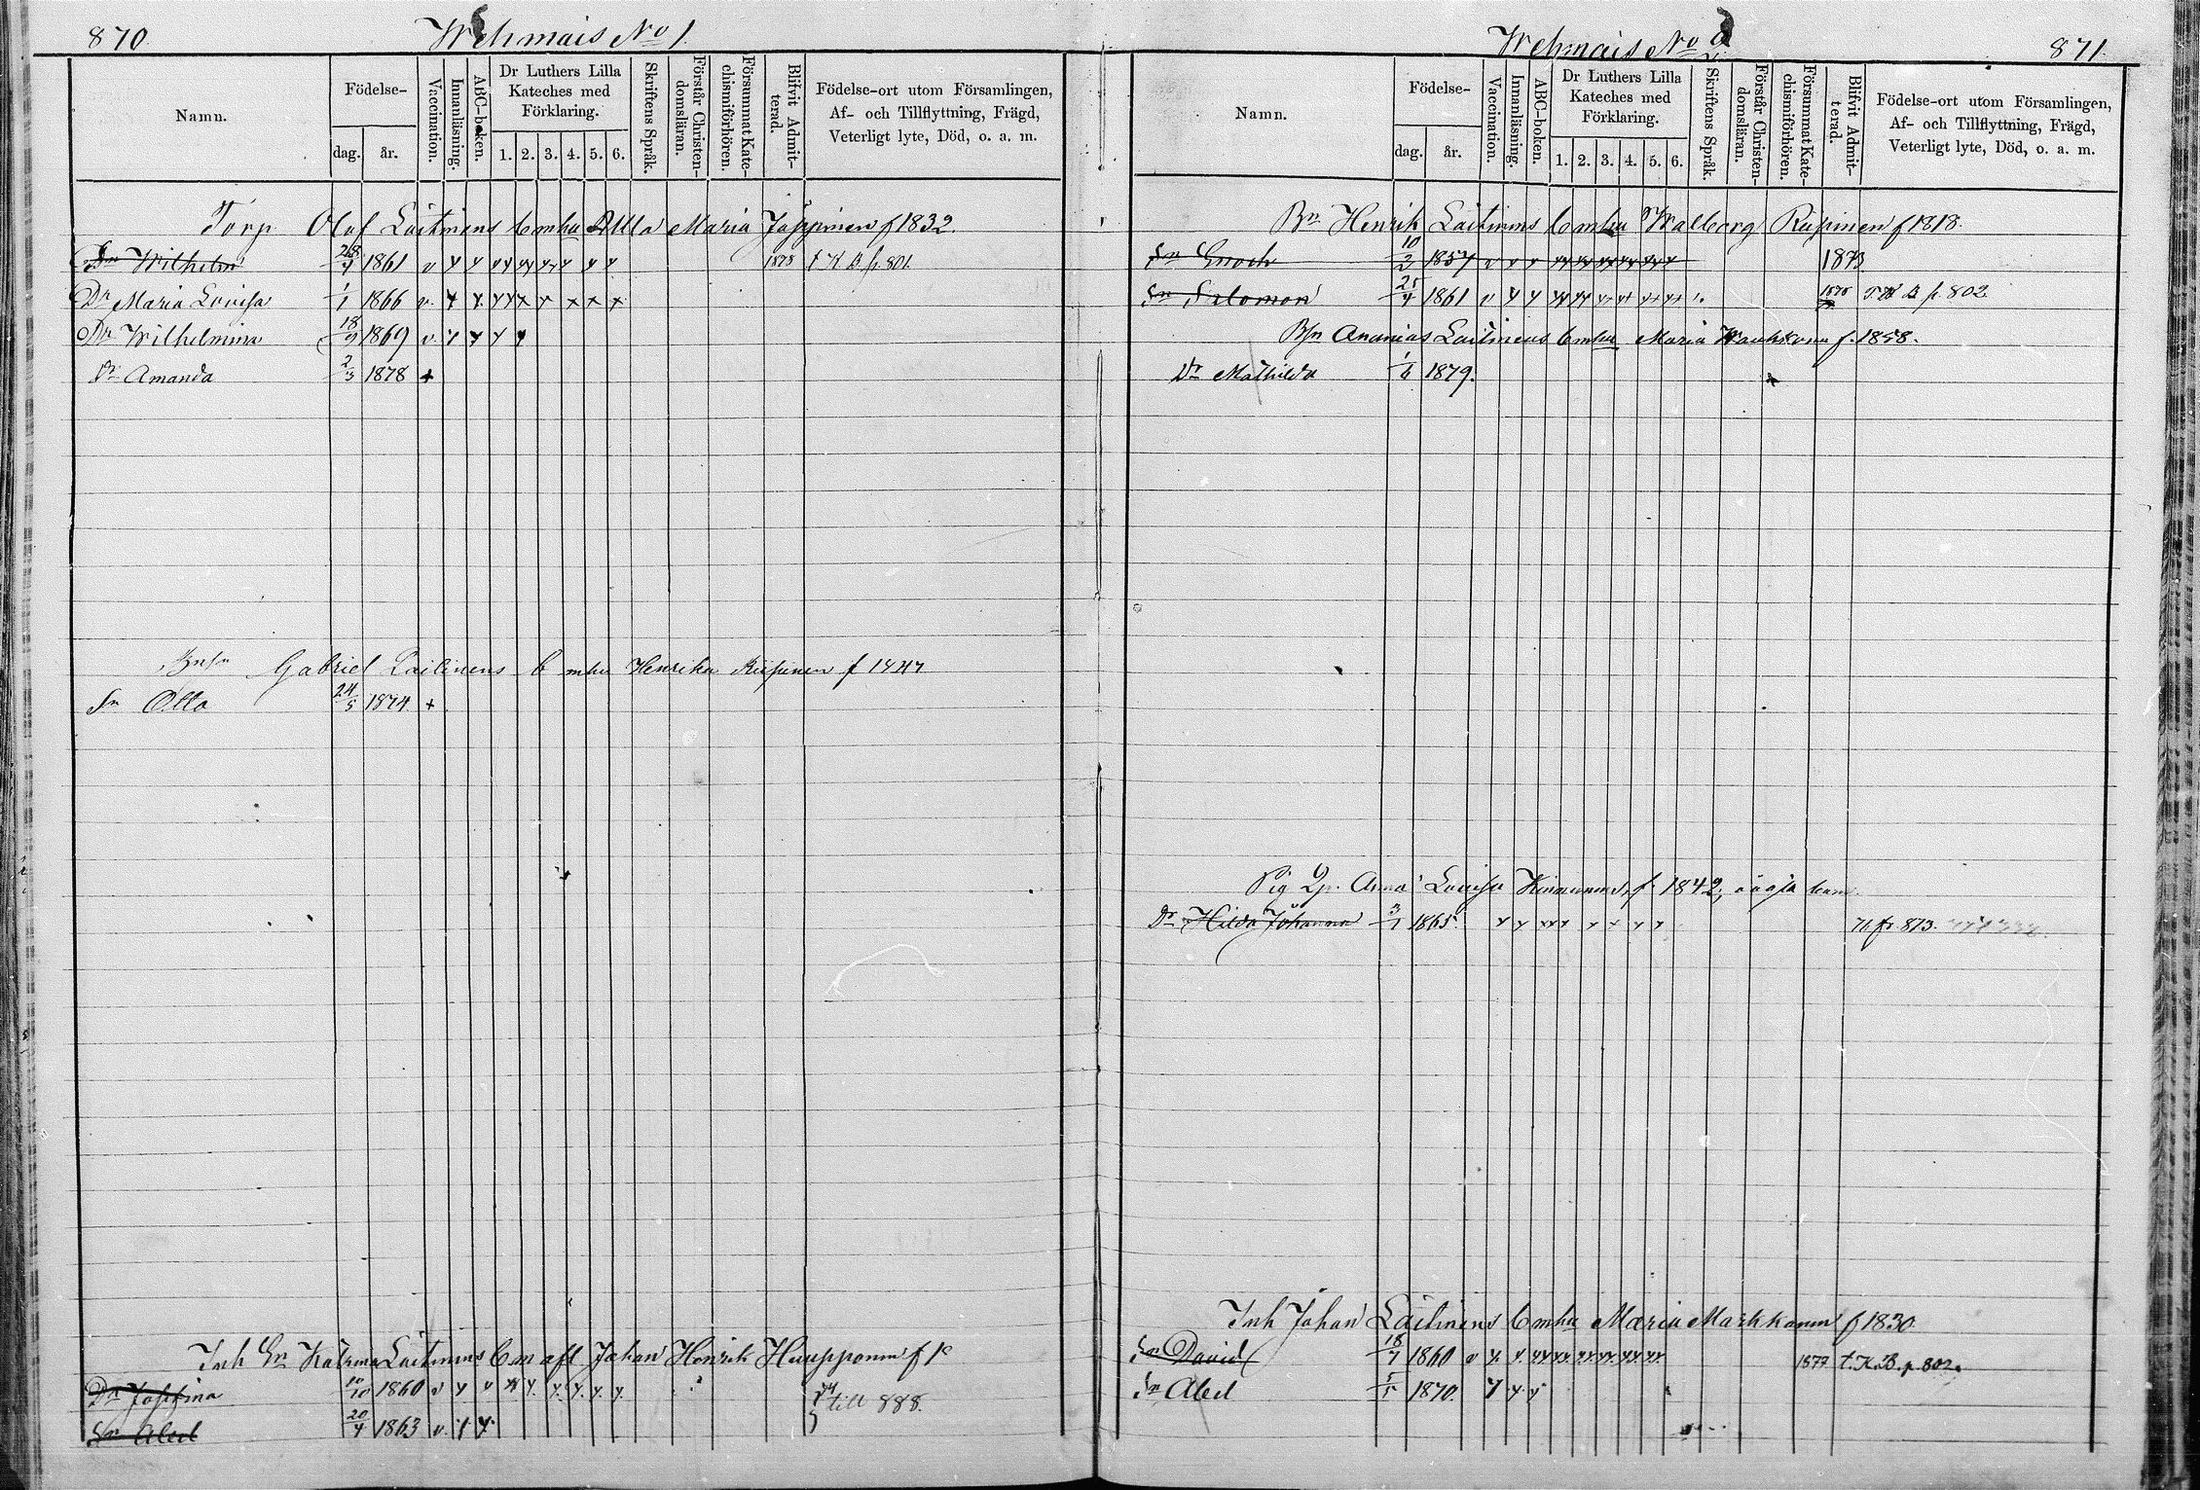 870.
Wehmais No 1.
Namn.
Födelse-
dag.
år.
Vaccination.
Innanläsning.
ABC-boken.
Dr Luthers Lilla
Kateches med
Förklaring.
1. 2. 3. 4. 5. 6.
Skriftens Språk.
Förstår Christen-
domsläran.
Försummat Kate-
chismiförhören.
Blifvit Admit-
terad.
Födelse-ort utom Församlingen,
Af- och Tillflyttning, Frägd,
Veterligt lyte, Död, o. a. m.
Torp Olof Laitinens b mhu Ulla Maria Jäppinen f 1832.
Sn Wilhelm 28/4 1861 v y y yy yy yy y y 1878 t K B p. 801.
Dr Maria Lovisa 1/1 1866 v. y y. y y x x x x x
Dr Wilhelmina 18/9 1869 v. y y y y
Dr Amanda 2/3 1878 +
Gabriel Laitinens b mhu Henrika Riipinen f
Sn Otto 24/5 1874. +
Inh Katrina Laitinens b m afl Johan Henrik Huupponen f
Dr Josefina 10/10 1860 v y v yy y. y. y. y. y.
till 888.
Sn Abel 20/4 1863 v. y y.
Wehmais No 2
871.
Namn.
Födelse-
dag.
år.
Vaccination.
Innanläsning.
ABC-boken.
Dr Luthers Lilla
Kateches med
Förklaring.
1. 2. 3. 4. 5. 6.
Skriftens Språk.
Förstår Christen-
domsläran.
Försummat Kate-
chismiförhören.
Blifvit Admit-
terad.
Födelse-ort utom Församlingen,
Af- och Tillflyttning, Frägd,
Veterligt lyte, Död, o. a. m.
Bn Henrik Laitinens b mhu Walborg Riipinen f 1818.
Sn Enoch 10/2 1857 v v v yy yy yy yy y y 1873.
Sn Salomon 25/4 1861 v y y yy yy y+ y+ y+ y+ T. K B p. 802
Bsn Ananias Laitinens b mhu Maria f. 1858.
Dr Mathilda 1879.
Pig Anna Lovisa f. 1842,
Dr Hilda Johanna 3/1 1865. y y yy y y y y y 71 fr. 873.
Inh Johan Laitinens b mhu Maria Markkanen f 1830.
Sn David 18/7 1860 v y. y. yy yy yy yy yy yy. 1877 t. K. B. p. 802.
Sn Abel 5/5 1870. y y. y